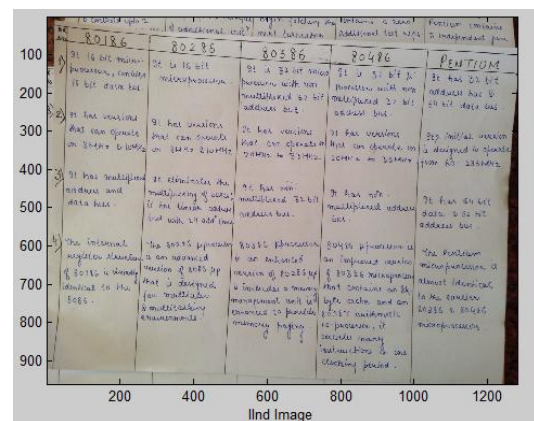 80186 80286 80386 80486 PENTIUM
1) It is 16 bit micro-
processor, contains
16 bit data bus.
It is 16 bit
microprocessor.
It is 32 bit micro
processor with non
multiplexed 32 bit
address bus
It is 32 bit
processor with non
multiplexed 32 bit
address bus.
It has 32 bit
address bus &
64 bit data bus
2) It has versions
that can operate
It has versions
that can operate
It has versions
that can operate
It has versions
that can operate
initial version
is designed to operate
3) It has multiplexed
address and
data bus.
It eliminates the
multiplexing of
It has non
multiplexed 32 bit
address bus.
It has non
multiplexed address
bus.
It has 64 bit
data & 32 bit
address bus.
4) The internal
register structure
of 80186 is
identical to the
8086.
The 80286
is an advanced
version of 8086 µp
that is designed
for multiuser
& multitasking
environments.
80386
is an enhanced
version of 80286 µp
& includes a memory
management unit is
enhanced to provide
memory paging
80486
is an improved version
of 80386 microprocessor
that contains an 8K
byte cache and an
80387 arithmetic
co processor, it
executes many
instructions in one
clocking period.
The Pentium
microprocessor is
almost identical
to the earlier
80386 & 80486
microprocessors
100
200
300
400
500
600
700
800
900
200 400 600 800 1000 1200
IInd Image